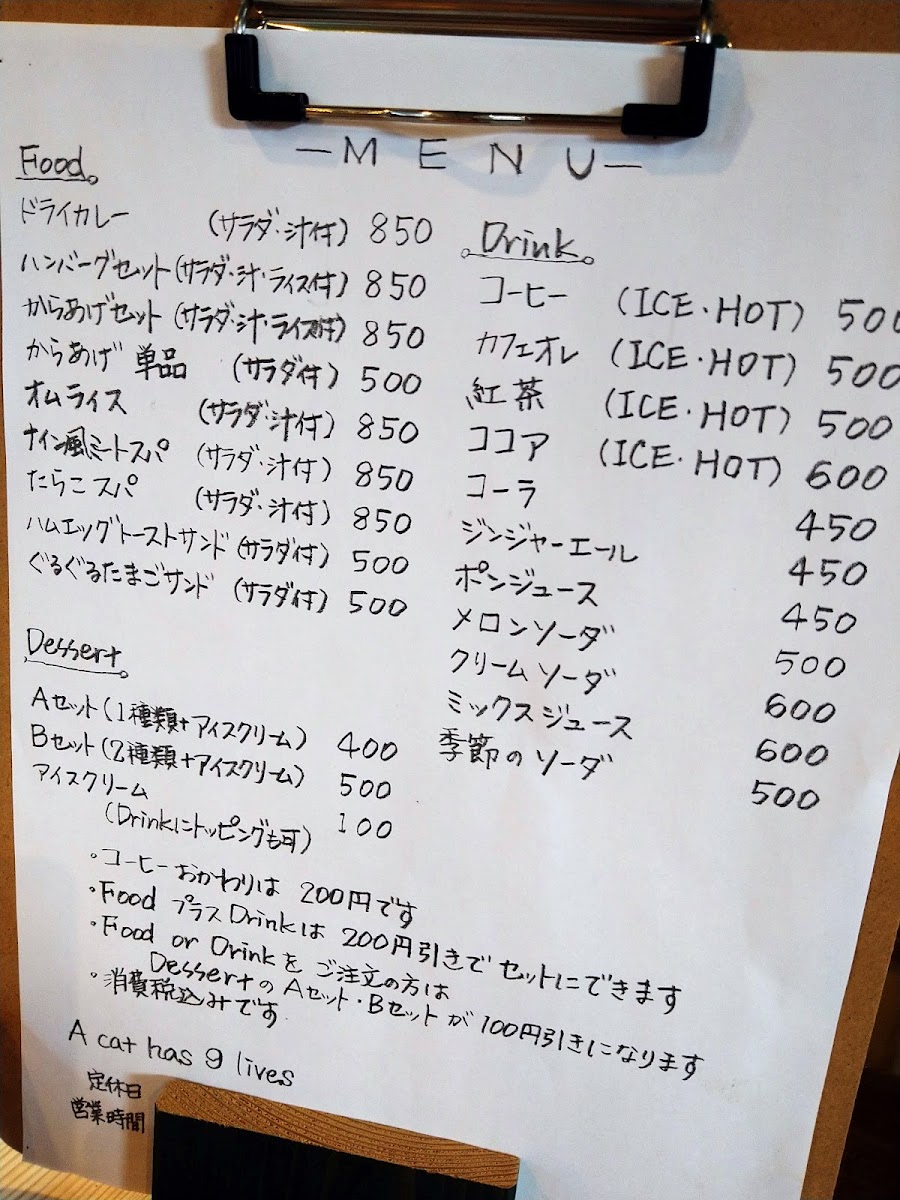 — M E N U —
Food
ドライカレー (サラダ・汁付) 850
ハンバーグセット (サラダ・汁・ライス付) 850
からあげセット (サラダ・汁・ライス付) 850
からあげ 単品 (サラダ付) 500
オムライス (サラダ・汁付) 850
ナイン風ミートスパ (サラダ・汁付) 850
たらこスパ (サラダ・汁付) 850
ハムエッグトーストサンド (サラダ付) 500
ぐるぐるたまごサンド (サラダ付) 500
Dessert
Aセット (1種類+アイスクリーム) 400
Bセット (2種類+アイスクリーム) 500
アイスクリーム 100
(Drinkにトッピングも可)
Drink
コーヒー (ICE・HOT) 500
カフェオレ (ICE・HOT) 500
紅茶 (ICE・HOT) 500
ココア (ICE・HOT) 600
コーラ 450
ジンジャーエール 450
ポンジュース 450
メロンソーダ 500
クリームソーダ 600
ミックスジュース 600
季節のソーダ 500
・コーヒーおかわりは 200円です
・Food プラス Drinkは 200円引きで セットにできます
・Food or Drinkを ご注文の方は
Dessertの Aセット・Bセットが 100円引きになります
・消費税込みです
A cat has 9 lives
定休日
営業時間